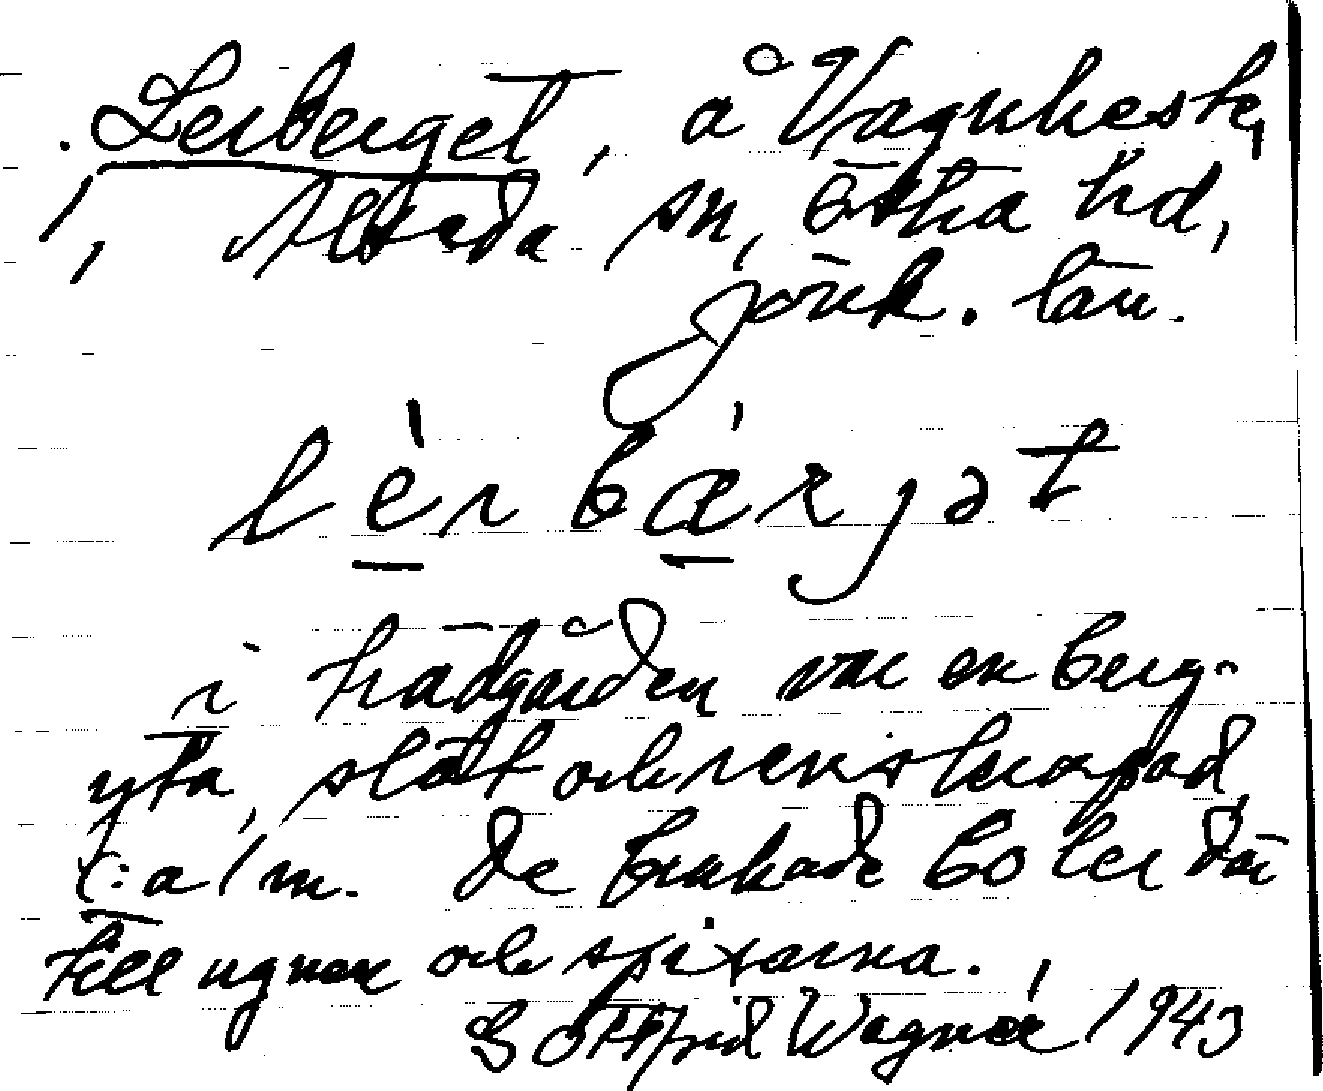 Lerberget, å Vagnhester,
Alseda sn, Östra hd,
Jönk. län.
lèrbǽrjət
i trädgården var en berg-
yta, slät och renskrapad
t:a 1 m. De brukade bo ler där
till ugnen och spisarna.
Gottfrid Wagnér 1943